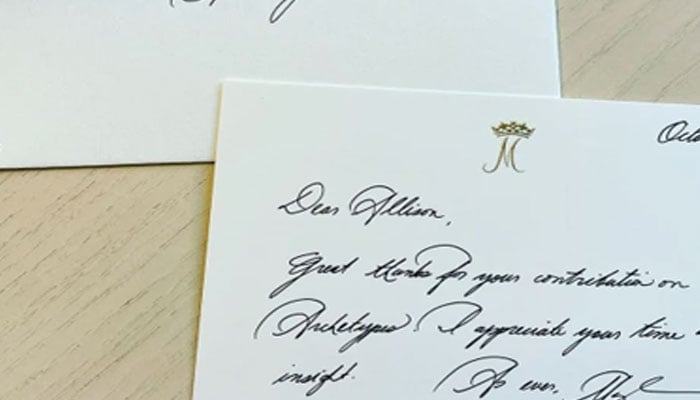 M
Dear Allison,
Great thanks for your contribution on
Archetypes! I appreciate your time
insight. As ever,